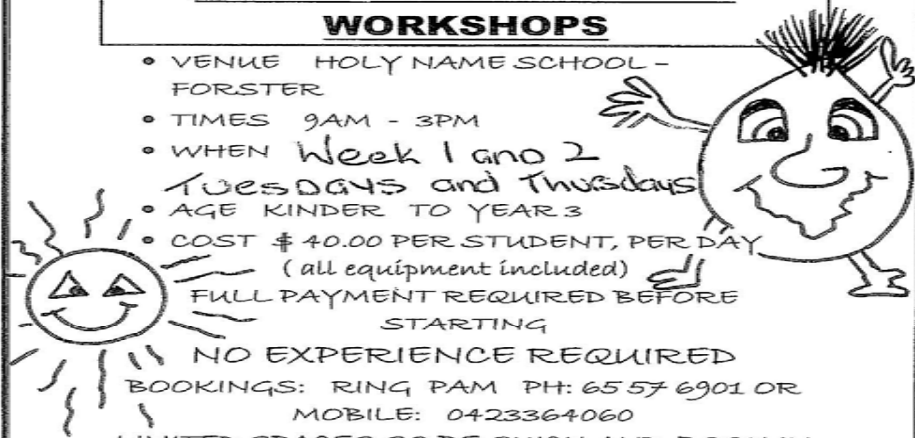 WORKSHOPS
• VENUE HOLY NAME SCHOOL -
FORSTER
• TIMES 9AM - 3PM
• WHEN Week 1 and 2
Tuesdays and Thursdays
• AGE KINDER TO YEAR 3
• COST $ 40.00 PER STUDENT, PER DAY
( all equipment included)
FULL PAYMENT REQUIRED BEFORE
STARTING
NO EXPERIENCE REQUIRED
BOOKINGS: RING PAM PH: 65 57 6901 OR
MOBILE: 0423364060
LIMITED SPACES SO BE QUICK AND BOOK IN